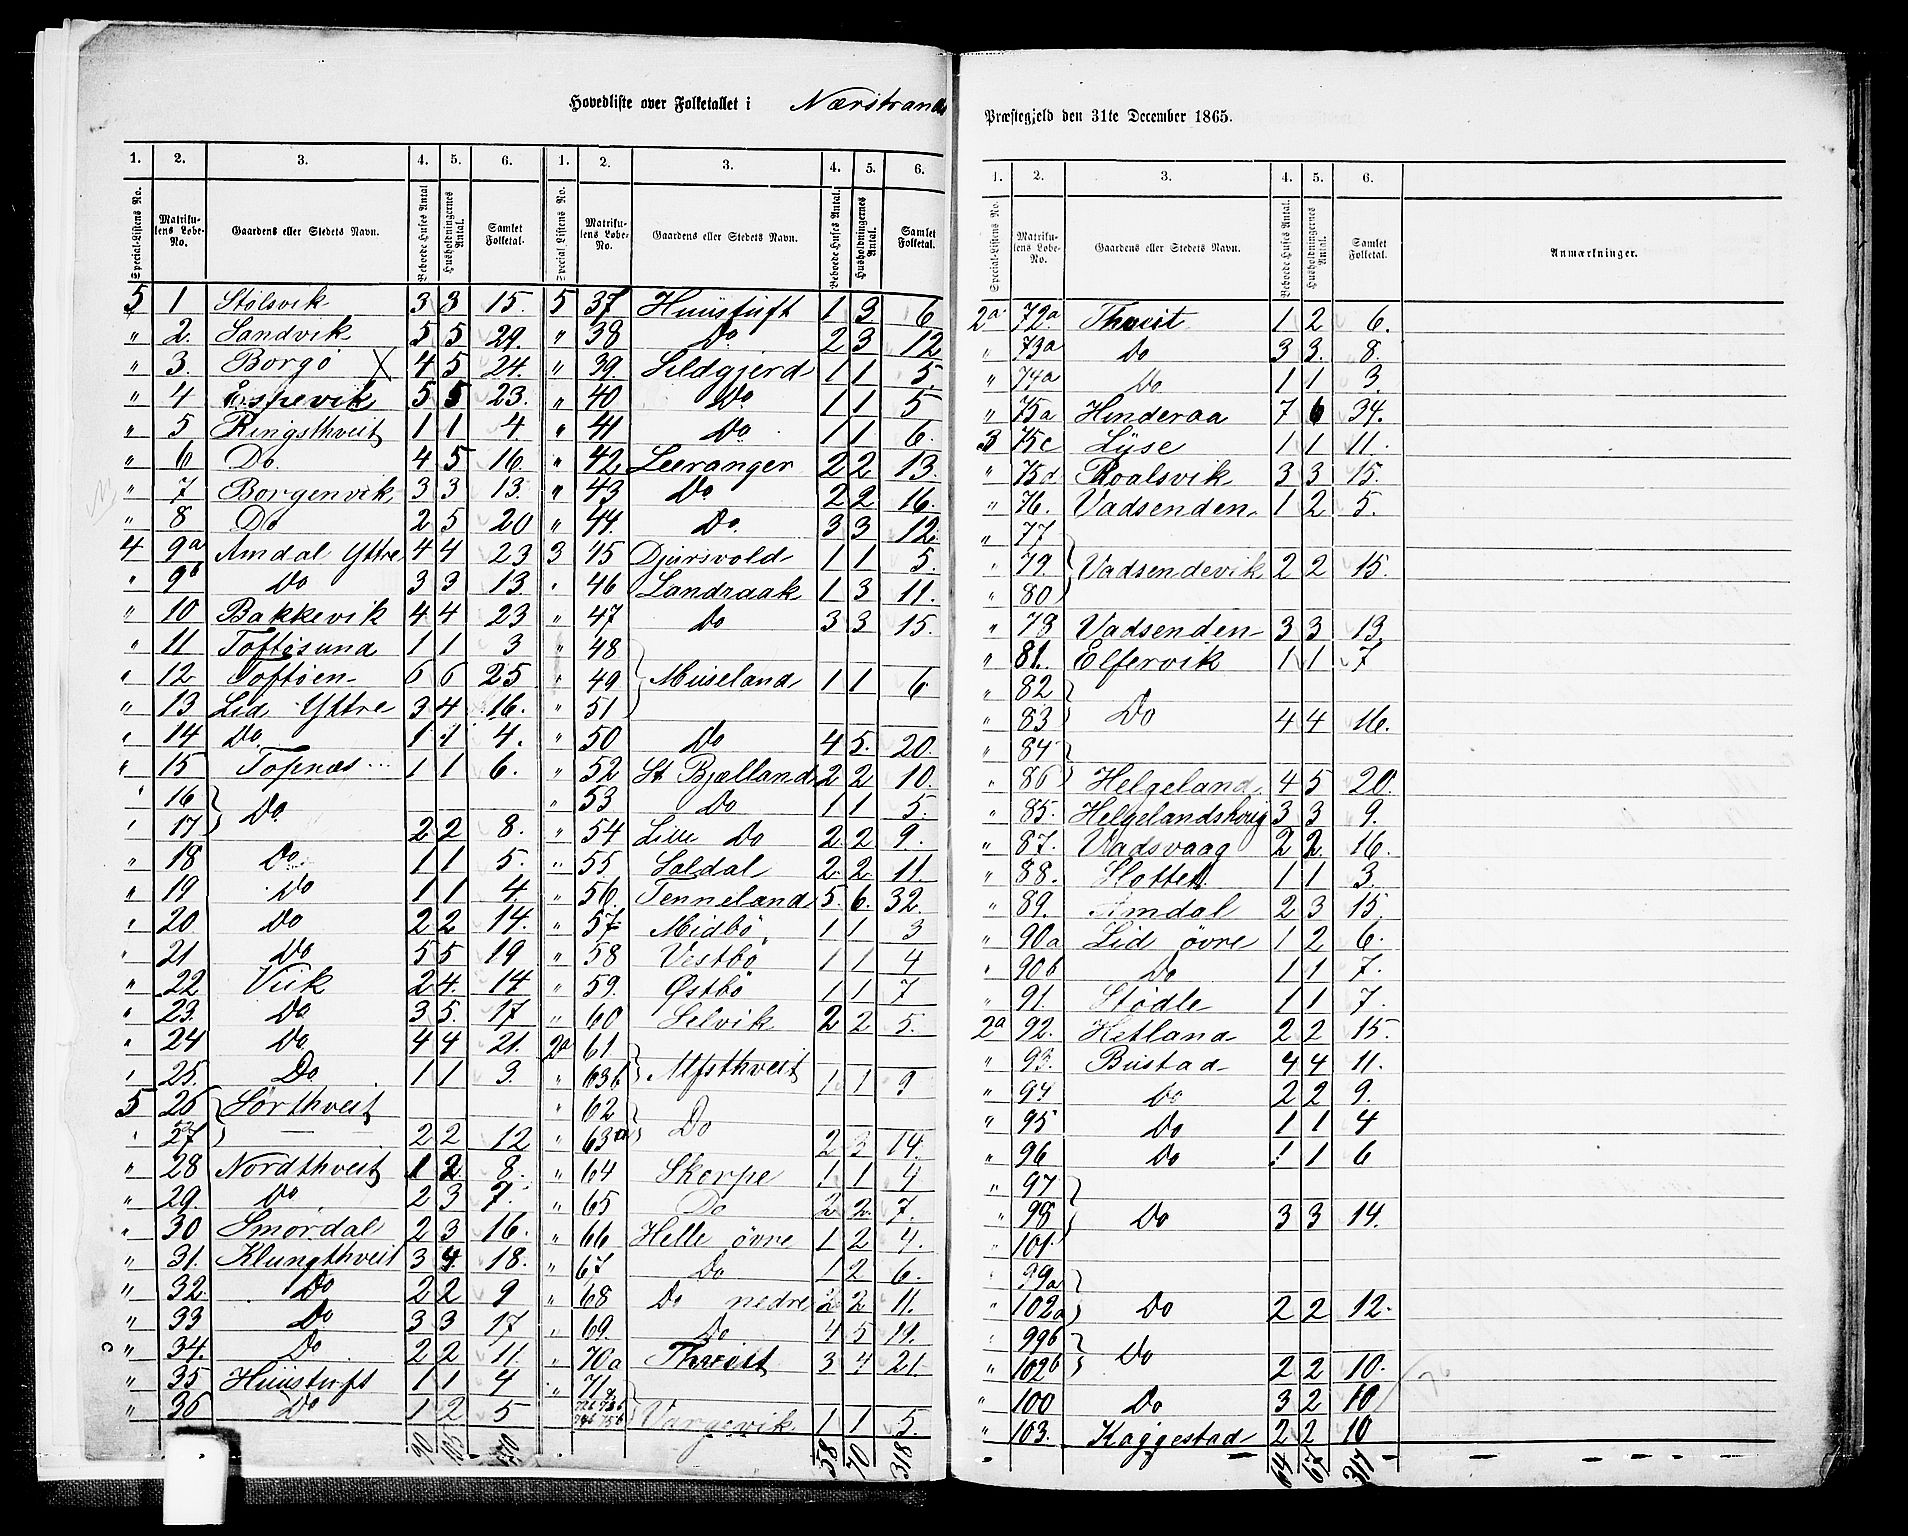 Hovedliste over Folketallet i Nærstrands Præstegjeld den 31te December 1865.
1. 2. 3. 4. 5. 6. 1. 2. 3. 4. 5. 6.
Special-Listens No. Matrikulens Løbe-No. Gaardens eller Stedets Navn. Beboede Huses Antal Husholdningernes Antal. Samlet Folketal. Special-Listens No. Matrikulens Løbe-No. Gaardens eller Stedets Navn. Beboede Huses Antal. Husholdningernes Antal. Samlet Folketal.
5 1 Stølsvik 3 3 15.
" 2. Sandvik 5 5 29.
" 3. Borgø X 4 5 24.
" 4 Espevik 5 5 23.
" 5 Ringsthveit 1 1 4
" 6 Do 4 5 16.
" 7 Borgenvik 3 3 13.
" 8 Do 2 5 20
4 9a Amdal Yttre 4 4 23
" 9b Do 3 3 13.
" 10 Bakkevik 4 4 23
" 11 Toftøsund 1 1 3
" 12 Toftøen 6 6 25
" 13 Lid Yttre 3 4 16.
" 14 Do 1 1 4.
" 15 Topnæs 1 1 6.
" 16 } Do
" 17 2 2 8.
" 18 Do 1 1 5.
" 19 Do 1 1 4.
" 20 Do 2 2 14.
" 21 Do 5 5 19
" 22 Viik 2 4. 14
" 23. Do 3 5. 17
" 24 Do 4 4 21.
" 25. Do 1 1 3.
5 26 } Sørthveit
" 27 — 2 2 12
" 28 Nordthveit 1 2 8.
" 29. Do 2 3 7.
" 30 Smørdal 2 3 16.
" 31. Klungthveit 3 4. 18.
" 32. Do 2 2 9
" 33 Do 3 3 17
" 34. Do 2 2 11.
" 35 Huustuft 1 1 4
" 36 Do 1 2 5
90 105
5 37 Huustuft 1 3 6
" 38 Do 2 3 12
" 39. Sildgjerd 1 1 5.
" 40 Do 1 1 5
" 41 Do 1 1 6.
" 42 Leeranger 2 2 13.
" 43 Do 2 2 16.
" 44. Do. 3 3 12.
3 45 Djursvold 1 1 5.
" 46 Landraak 1 3 11.
" 47 Do 3 3 15.
" 48
" 49 } Museland 1 1 6
" 51
" 50 Do 4 5. 20.
" 52 St Bjelland 2 2 10.
" 53 Do 1 1 5.
" 54 Lille Do 2. 2 9.
" 55. Saldal 2. 2. 11.
" 56. Tenneland 5. 6. 32.
" 57 Midbø 1 1 3
" 58 Vestbø 1 1 4
" 59. Østbø 1 1 7
" 60 Selvik 2 2 5.
2a 61
" 63b } Alfsthveit 1 1 9
" 62
" 63a } Do 2 3 14.
" 64 Skorpe 1 1 4
" 65 Do 2 2. 7.
" 66 Helle øvre 1 2 4.
" 67 Do 1 2 6.
" 68 Do nedre 2 2 11.
" 69. Do 4 5 19.
" 70a Thveit 3 4 21.
" 71
72b 73b 74b 75b } Vargevik 1 1 5.
58 70 318
1. 2. 3. 4. 5. 6.
Special-Listens No. Matrikulens Løbe-No. Gaardens eller Stedets Navn. Beboede Huses Antal. Husholdningernes Antal. Samlet Folketal. Anmærkninger.
2a 72a Thveit 1 2 6.
" 73a Do 3 3. 8.
" 74a Do 1 1 3.
" 75a Hinderaa 7 6 34.
3 75c Lyse 1 1 11.
" 75d Roalsvik 3 3 15.
" 76. Vadsenden 1 2 5.
" 77
" 79. } Vadsendevik 2 2 15.
" 80
" 78 Vadsenden 3 3 13
" 81. Elfervik 1 1 7
" 82
" 83 } Do 4 4 16.
" 84
" 86 } Helgeland 4 5 20.
" 85. Helgelandshoug 3 3 9.
" 87. Vadsvaag 2 2. 16.
" 88. Slotten 1 1 3.
" 89. Amdal 2 3 15.
" 90a Lid øvre 1 2 6.
" 90b Do 1 1 7.
" 91. Stødle 1 1 7.
2a 92. Hetland 2 2 15.
" 93. Bustad 4 4 11.
" 94 Do 2 2 9.
" 95 Do 1 1 4
" 96 Do 1 1 6
" 97
" 98 } Do 3 3 14.
" 101.
" 99a
" 102a } Do 2 2 12.
" 99b
" 102b } Do 2 2 10.
" 100 Do 3 2 10
" 103. Kaggestad 2 2 10
64 67 317